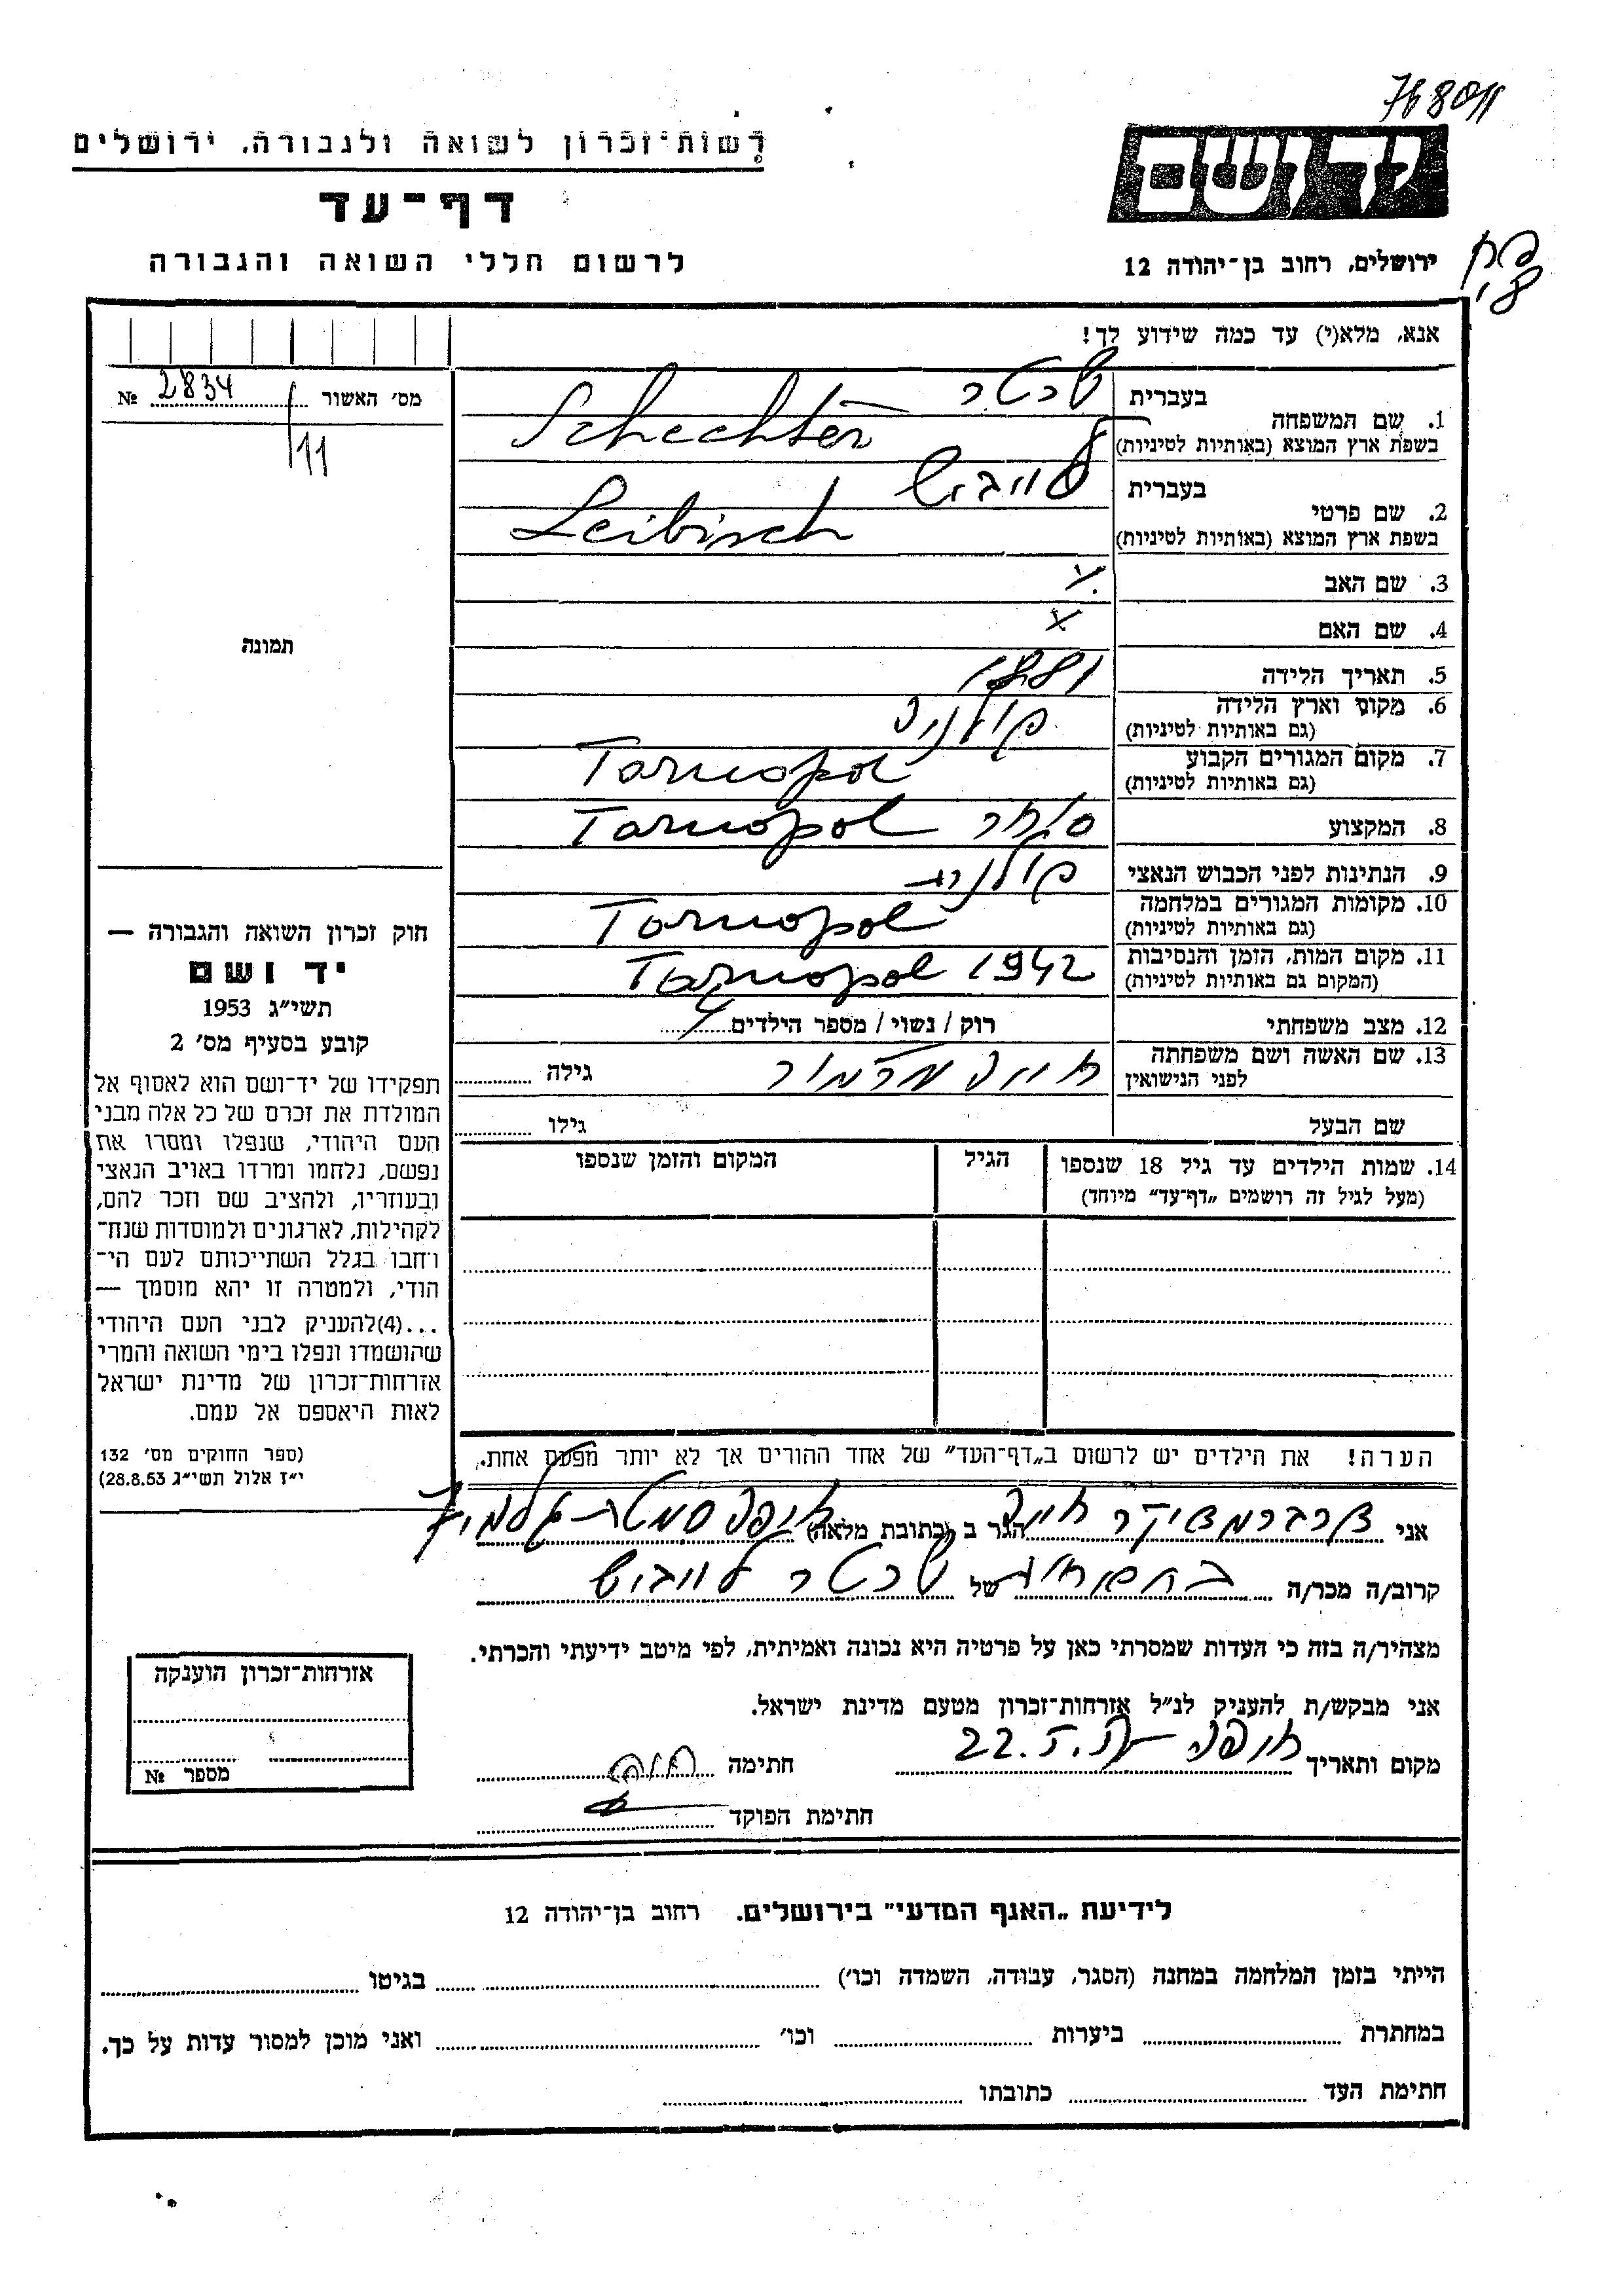 768011
רשות-זכרון לשואה ולגבורה, ירושלים
יד ושם
דף-עד
לרשום חללי השואה והגבורה
ירושלים, רחוב בן-יהודה 12
אנא, מלא(י) עד כמה שידוע לך!
מס׳ האשור № 2834
11
1. שם המשפחה
בעברית שכטר
בשפת ארץ המוצא (באותיות לטיניות) Schechter
2. שם פרטי
בעברית לייביש
בשפת ארץ המוצא (באותיות לטיניות) Leibisch
3. שם האב
4. שם האם x
5. תאריך הלידה 1881
6. מקום וארץ הלידה פולניה
(גם באותיות לטיניות)
7. מקום המגורים הקבוע Tarnopol
(גם באותיות לטיניות)
8. המקצוע סוחר Tarnopol
9. הנתינות לפני הכבוש הנאצי פולנית
10. מקומות המגורים במלחמה Tarnopol
(גם באותיות לטיניות)
11. מקום המות, הזמן והנסיבות 1942 Tarnopol
(המקום גם באותיות לטיניות)
12. מצב משפחתי רוק / נשוי / מספר הילדים 4
13. שם האשה ושם משפחתה
לפני הנישואין גילה
שם הבעל גילו
14. שמות הילדים עד גיל 18 שנספו הגיל המקום והזמן שנספו
(מעל לגיל זה רושמים „דף-עד״ מיוחד)
הערה! את הילדים יש לרשום ב„דף-העד״ של אחד ההורים אך לא יותר מפעם אחת.
תמונה
חוק זכרון השואה והגבורה —
יד ושם
תשי״ג 1953
קובע בסעיף מס׳ 2
תפקידו של יד-ושם הוא לאסוף אל
המולדת את זכרם של כל אלה מבני
העם היהודי, שנפלו ומסרו את
נפשם, נלחמו ומרדו באויב הנאצי
ובעוזריו, ולהציב שם וזכר להם,
לקהילות, לארגונים ולמוסדות שנח-
רבו בגלל השתייכותם לעם הי-
הודי, ולמטרה זו יהא מוסמך —
...(4)להעניק לבני העם היהודי
שהושמדו ונפלו בימי השואה והמרי
אזרחות-זכרון של מדינת ישראל
לאות היאספם אל עמם.
(ספר החוקים מס׳ 132
י״ז אלול תשי״ג 28.8.53)
אני הגר ב (כתובת מלאה) חיפה
קרוב/ה מכר/ה של שכטר לייביש
מצהיר/ה בזה כי העדות שמסרתי כאן על פרטיה היא נכונה ואמיתית, לפי מיטב ידיעתי והכרתי.
אני מבקש/ת להעניק לנ״ל אזרחות-זכרון מטעם מדינת ישראל.
מקום ותאריך חיפה 22.5. חתימה
חתימת הפוקד
אזרחות-זכרון הוענקה
מספר №
לידיעת „האגף המדעי״ בירושלים. רחוב בן-יהודה 12
הייתי בזמן המלחמה במחנה (הסגר, עבודה, השמדה וכו׳) בגיטו
במחתרת ביערות וכו׳ ואני מוכן למסור עדות על כך.
חתימת העד כתובתו